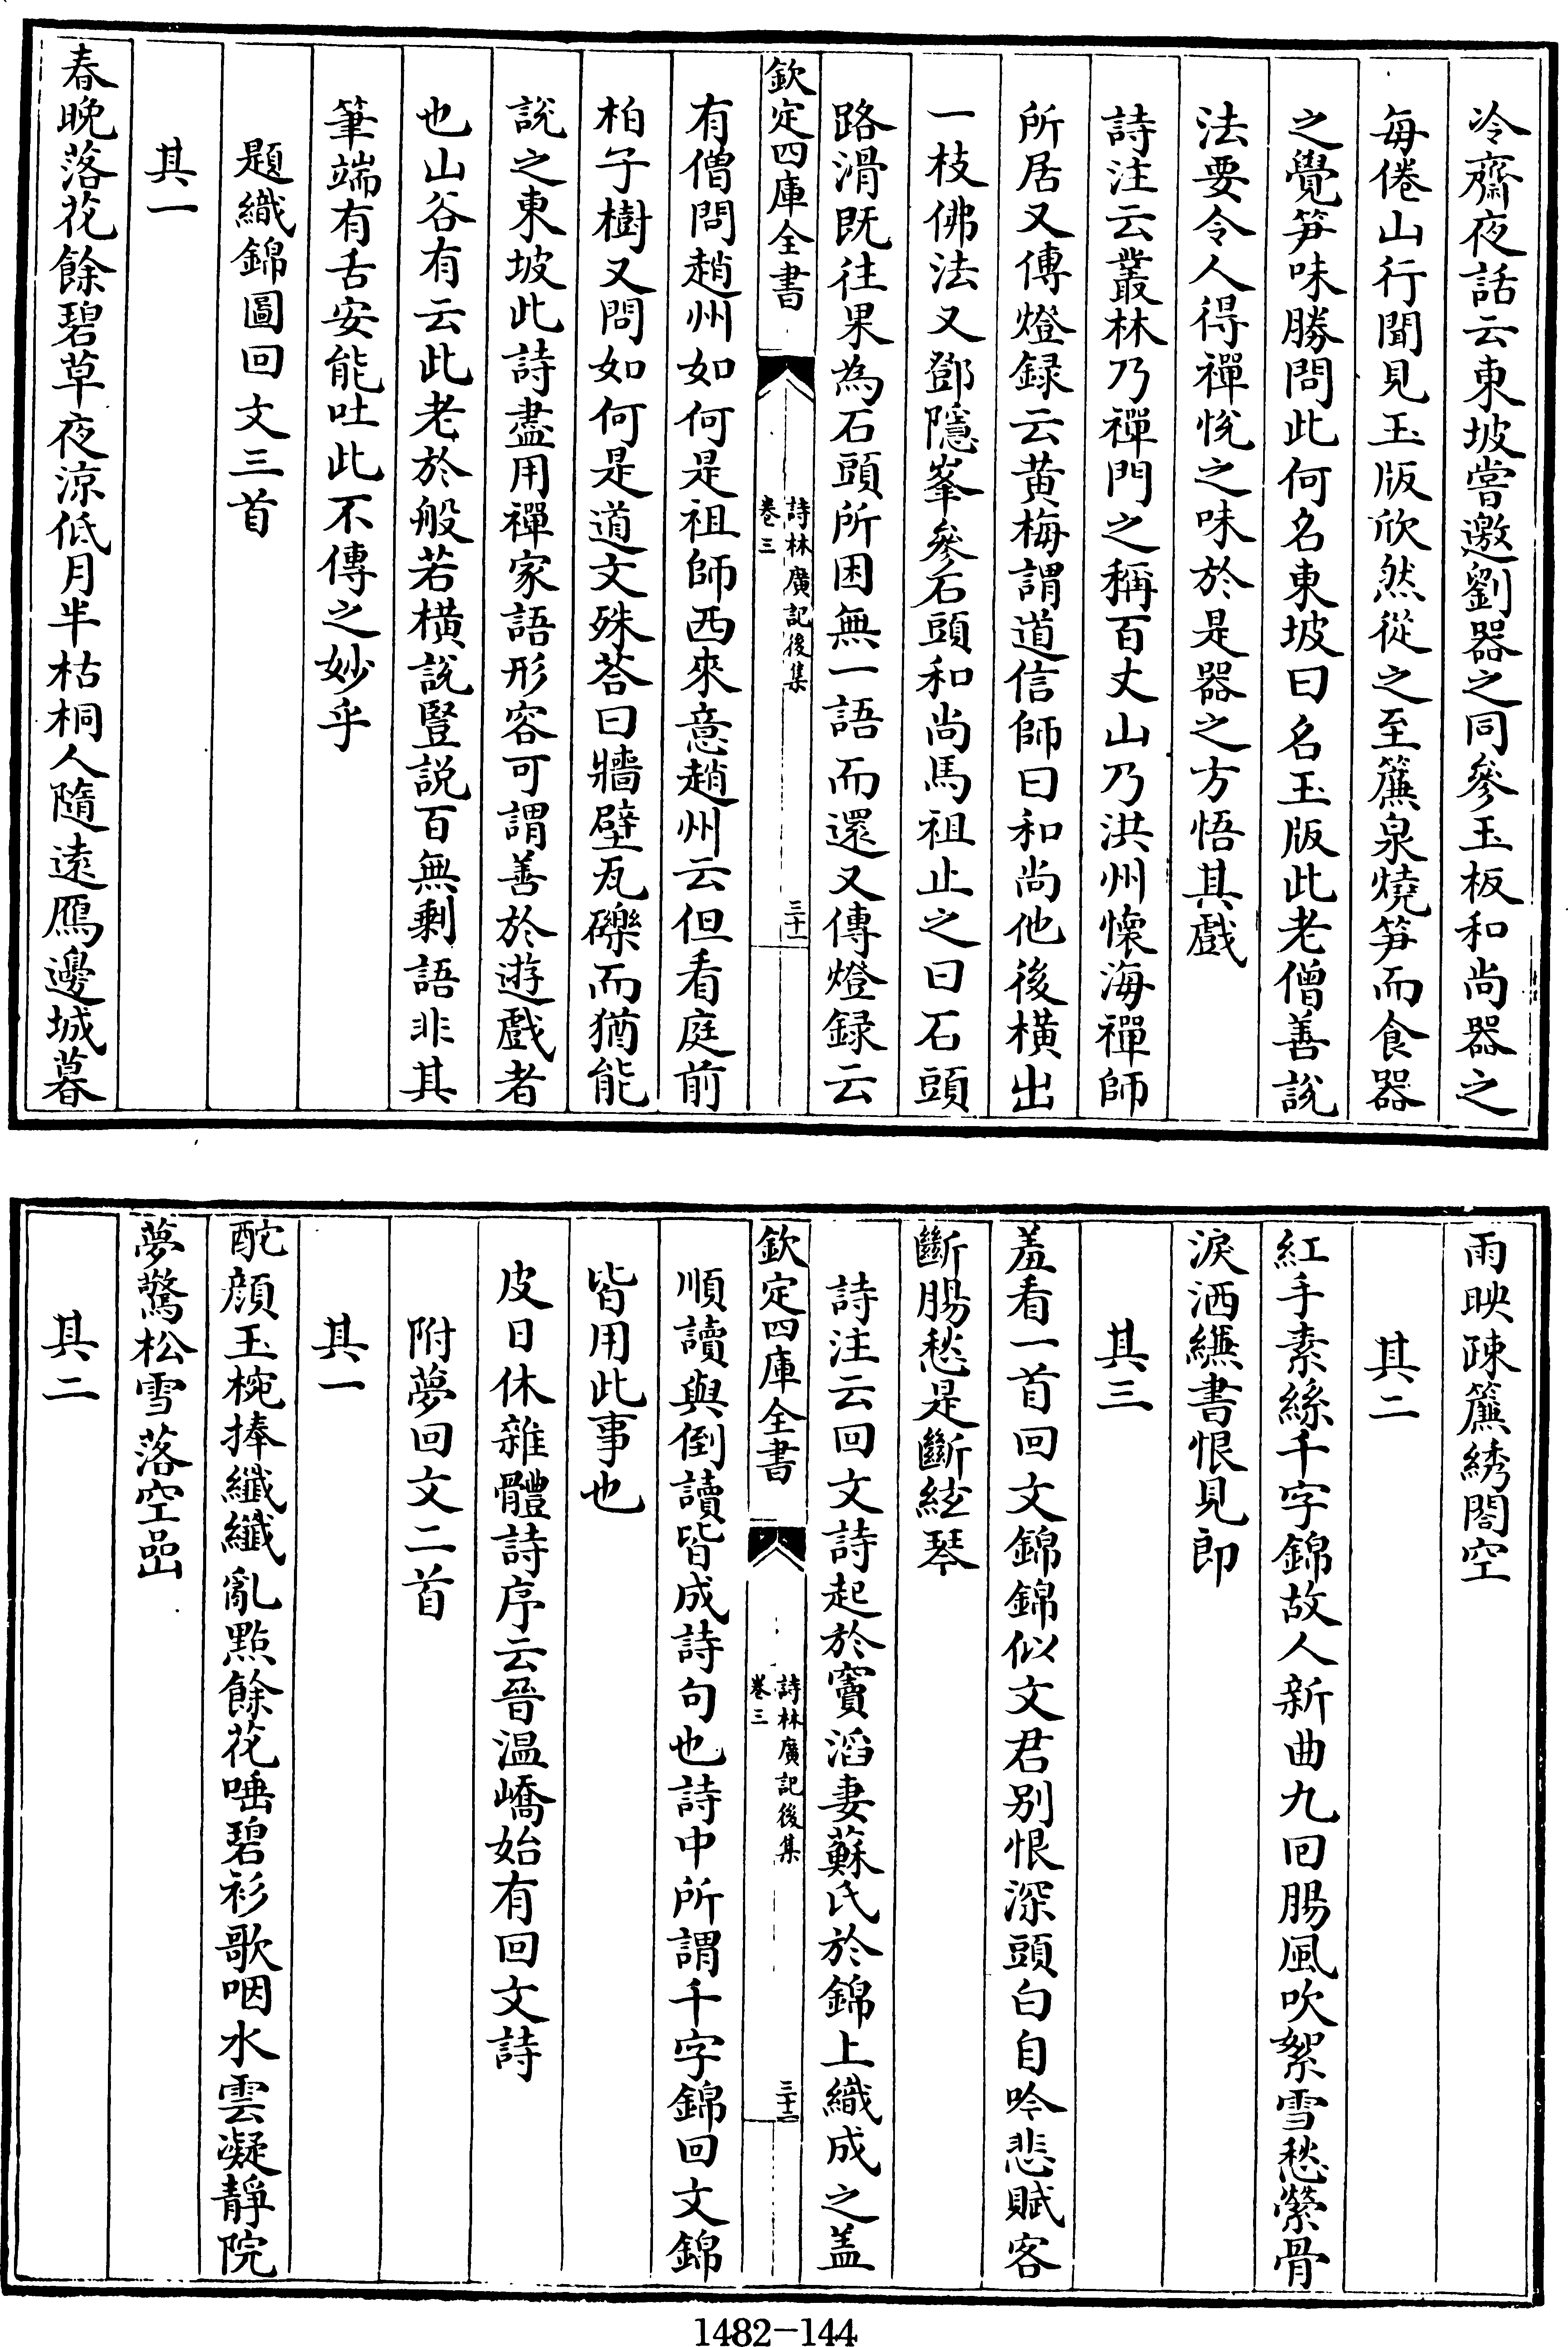 冷齋夜話云東坡嘗邀劉器之同參玉板和尚器之
每倦山行聞見玉版欣然從之至簾泉燒笋而食器
之覺笋味勝問此何名東坡曰名玉版此老僧善說
法要令人得禪悅之味於是器之方悟其戲
詩注云叢林乃禪門之稱百丈山乃洪州懷海禪師
所居又傳燈録云黄梅謂道信師曰和尚他後橫出
一枝佛法又鄧隱峯參石頭和尚馬祖止之曰石頭
路滑既往果為石頭所困無一語而還又傳燈録云
欽定四庫全書
詩林廣記後集
卷三
三十一
有僧問趙州如何是祖師西來意趙州云但看庭前
柏子樹又問如何是道文殊荅曰牆壁瓦礫而猶能
說之東坡此詩盡用禪家語形容可謂善於遊戲者
也山谷有云此老於般若橫說豎説百無剩語非其
筆端有舌安能吐此不傳之妙乎
題織錦圖回文三首
其一
春晚落花餘碧草夜涼低月半枯桐人隨遠鴈邊城暮
雨映疎簾綉閣空
其二
紅手素絲千字錦故人新曲九回腸風吹絮雪愁縈骨
淚洒縑書恨見郎
其三
羞看一首回文錦錦似文君别恨深頭白自吟悲賦客
斷腸愁是斷絃琴
詩注云回文詩起於竇滔妻蘇氏於錦上織成之盖
欽定四庫全書
詩林廣記後集
卷三
三十二
順讀與倒讀皆成詩句也詩中所謂千字錦回文錦
皆用此事也
皮日休雜體詩序云晉温嶠始有回文詩
附夢回文二首
其一
酡顔玉椀捧纖纖亂㸃餘花唾碧衫歌咽水雲凝靜院
夢驚松雪落空嵒
其二
1482-144